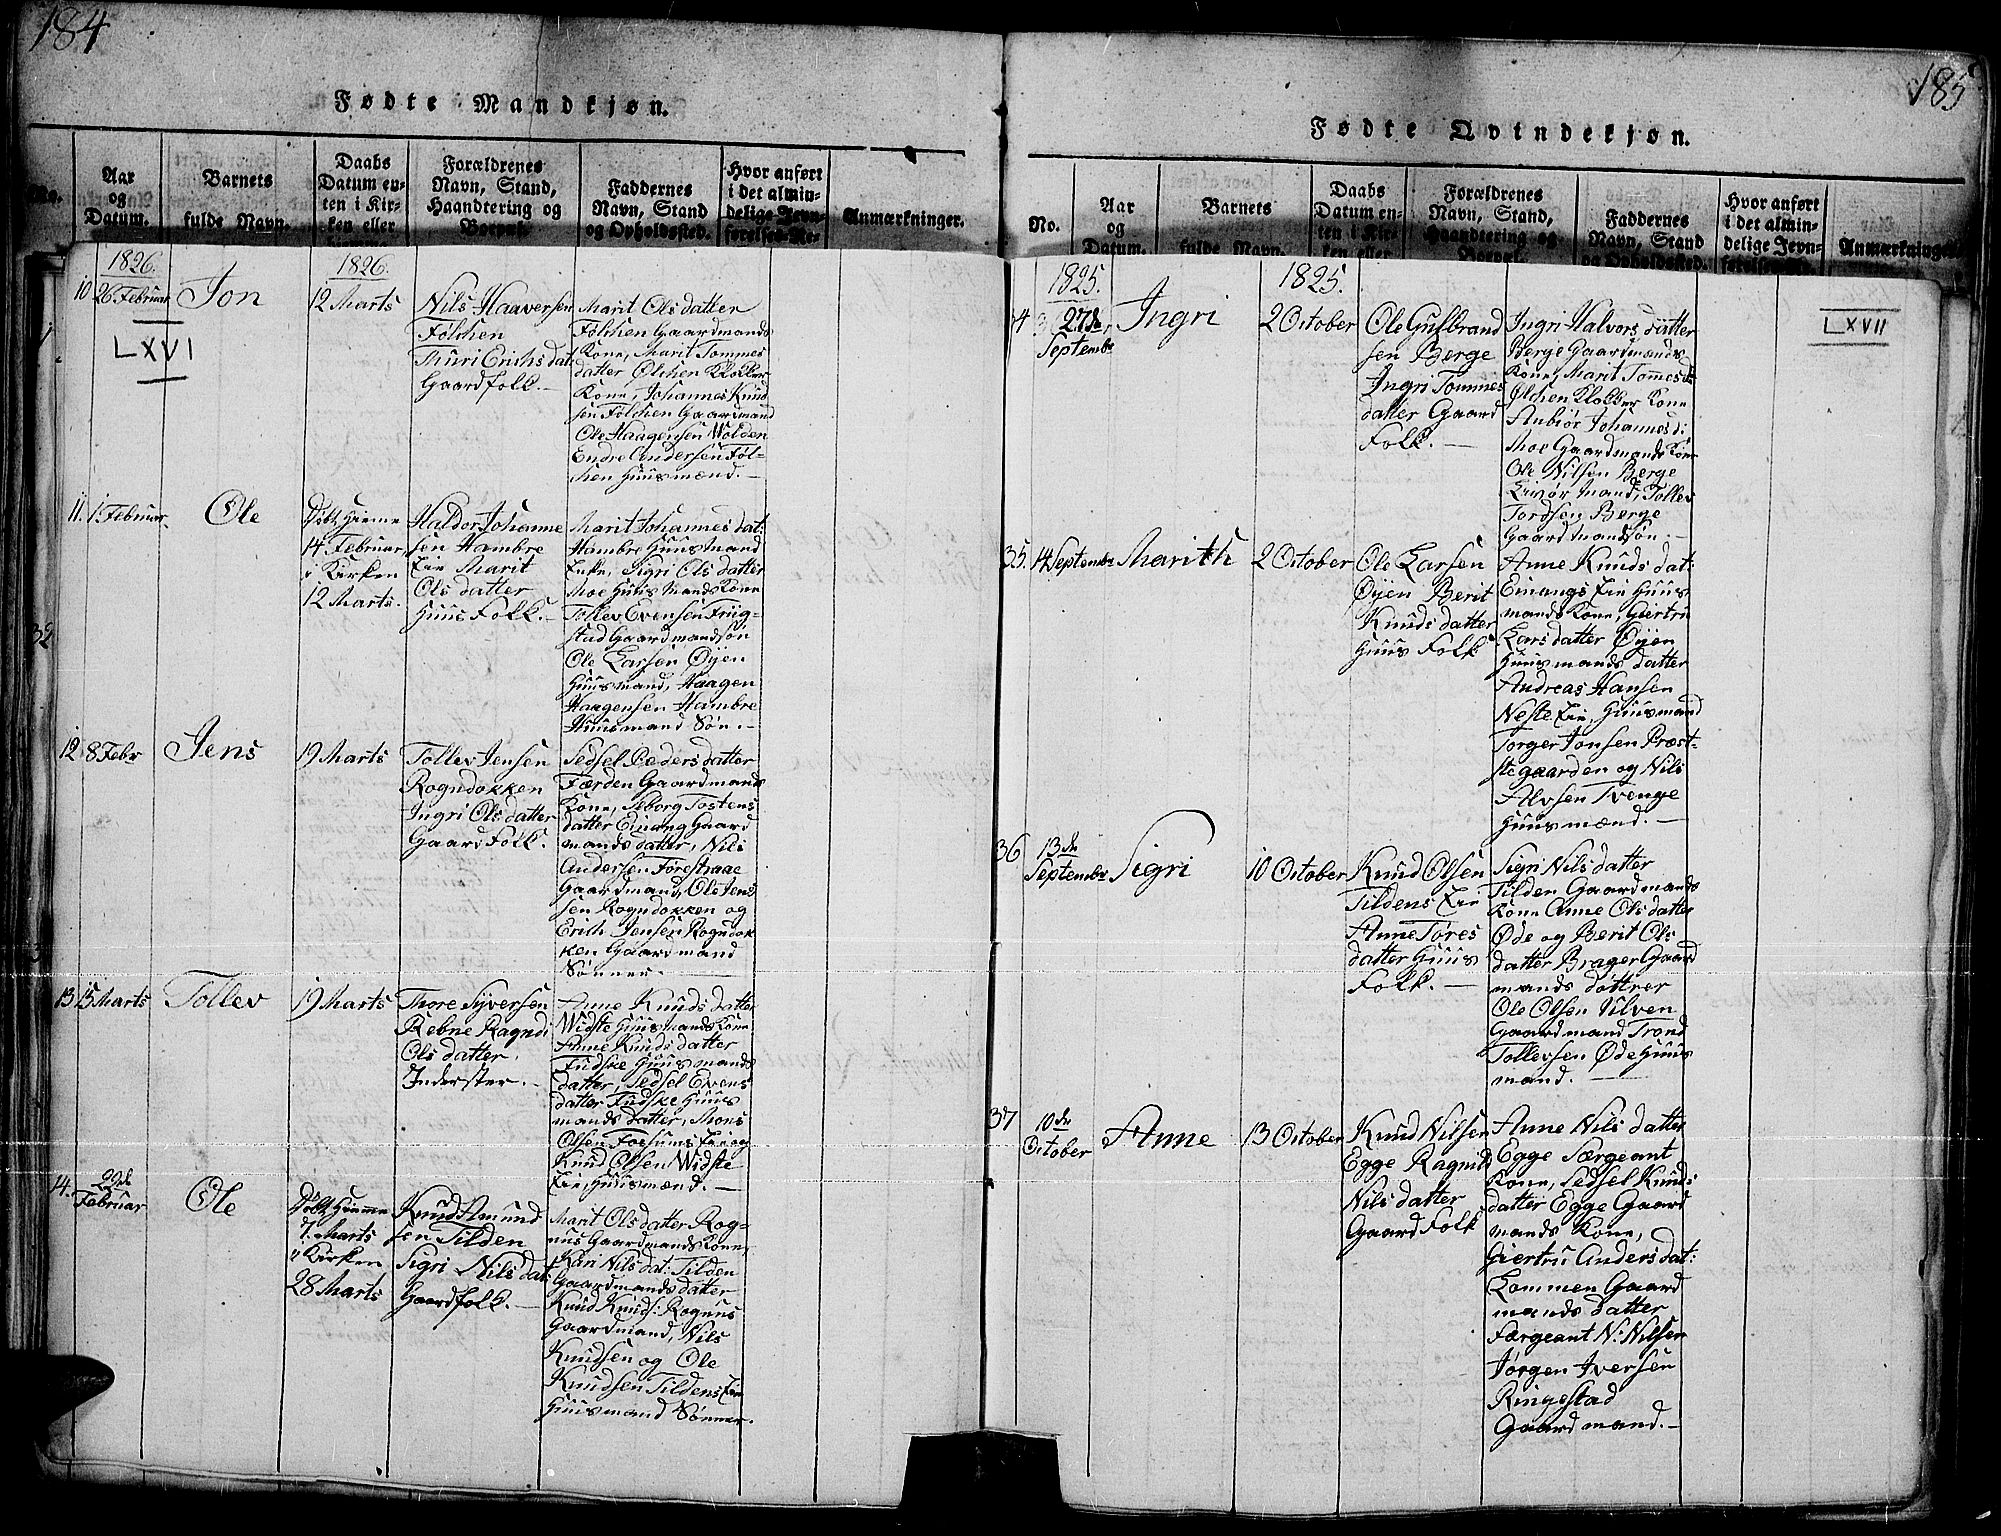 184
Fødte Mandkjøn.
No.
Aar og Datum.
Barnets fulde Navn.
Daabs Datum enten i Kirken eller
Forældrenes Navn, Stand, Haandtering og Bopæl.
Faddernes Navn, Stand og Opholdssted.
Hvor anført i det almindelige Jevnførelses-Re-
Anmærkninger.
1826.
1826.
10
26 Februar
LXVI
Jon
12 Marts
Nils Haaversen
Fölchen
Thuri Erichsdat:
Gaardfolk.
Marit Olsdatter
Fölchen Gaardmands
Kone, Marit Tommes
datter Ölchen Klokker
Kone, Johannes Knud
sen Fölchen Gaardmand
Ole Haagensen Wolden
Endre Andersen Föl-
chen Huusmænd.
11.
1 Februar
Ole
Döbt Hiemme
14 Februar
i Kirken
12 Marts.
Haldor Johanne
sen Hambre
Eie Marit
Olsdatter
Huus Folk.
Marit Johannesdat:
Hambre Huusmand
Enke, Sigri Olsdatter
Moe Huusmands Kone
Tollev Evensen Früg-
stad Gaardmandsøn
Ole Larsen Øyen
Huusmand, Haagen
Haagensen Hambre
Huusmand Søn.
12
8 Febr
Jens
19 Marts
Tollev Jensen
Rogndokken
Ingri Olsdatter
Gaard Folk.
Sedsel Pedersdatter
Færden Gaardmands
Kone, Seborg Tostens
datter Einang Gaard
mandsdatter, Nils
Andersen Forestraae
Gaardmand, Ole Jens
sen Rogndokken og
Erich Jensen Rogndok
ken Gaardmand
Sønner.
13
15 Marts
Tollev
19 Marts
Thore Syversen
Rebne Ragndi
Olsdatter
Inderster.
Anne Knudsdatter
Widste Huusmands Kone
Anne Knudsdatter
Fudske Huusmands
datter, Sedsel Evens
datter Fudske Huus
mandsdatter, Mons
Olsen Fosums Eie og
Knud Olsen Widste
Eie, Huusmænd.
14.
22de
Februar
Ole
Döbt Hiemme
7. Marts
i Kirken
28 Marts
Knud Amund
sen Tilden
Sigri Nilsdat:
Gaardfolk.
Marit Olsdatter Rog-
nus Gaardmands Kone,
Kari Nilsdat: Tilden
Gaardmandsdatter
Knud Knuds: Rognus
Gaardmand, Nils
Knudsen og Ole
Knudsen Tildens Eie
Huusmand Sønner.
185
Fødte Qvindekjøn.
No.
Aar og Datum.
Barnets fulde Navn.
Daabs Datum enten i Kirken eller
Forældrenes Navn, Stand, Haandtering og Bopæl.
Faddernes Navn, Stand og Opholdssted.
Hvor anført i det almindelige Jevn-
Anmærkninger
1825.
1825.
34
27de
Septembr
Ingri
2 October
Ole Gulbrand
sen Berge
Ingri Tommes
datter Gaard
Folk.
Ingri Halvorsdatter
Berge Gaardmands
Kone, Marit Tommesd:
Ölchen Klokker Kone
Anbiør Johannesd:
Moe Gaardmands Kone
Ole Nilsen Berge
Livør Mand, Tollev
Tordsen Berge
Gaardmandsøn.
LXVII
35.
14 Septembr
Marith
2 October
Ole Larsen
Øyen Berit
Knudsdatter
Huus Folk
Anne Knudsdat:
Einangs Eie Huus
mands Kone, Giertru
Larsdatter Øyen
Huusmandsdatter
Andreas Hansen
Neste Eie, Huusmand
Torger Jonsen Præst-
stegaarden og Nils
Alvsen Tvenge
Huusmænd.
36
13de
Septembr
Sigri
10 October
Knud Olsen
Tildens Eie
Anne Töres
datter Huus
Folk.
Sigri Nilsdatter
Tilden Gaardmands
Kone Anne Olsdatter
Øde og Berit Ols
datter Brager Gaard
mands døttrer
Ole Olsen Ulven
Gaardmand Trond
Tollevsen Øde Huus
mand.
37
10de
October
Anne
13 October
Knud Nilsen
Egge Ragnild
Nilsdatter
Gaard Folk
Anne Nilsdatter
Egge Særgeant
Kone, Sedsel Knuds
datter Egge Gaard
mands Kone,
Giertru Andersdat:
Lommen Gaard
mands datter
Særgeant N: Nilsen
Jørgen Iversen
Ringestad
Gaardmand.